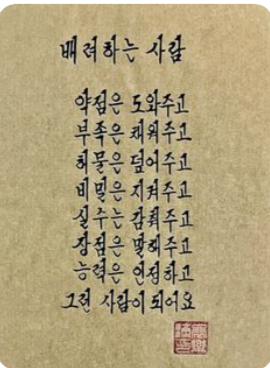 배려하는 사람
약점은 도와주고
부족은 채워주고
허물은 덮어주고
비밀은 지켜주고
실수는 감춰주고
장점은 말해주고
능력은 인정하고
그런 사람이 되어요